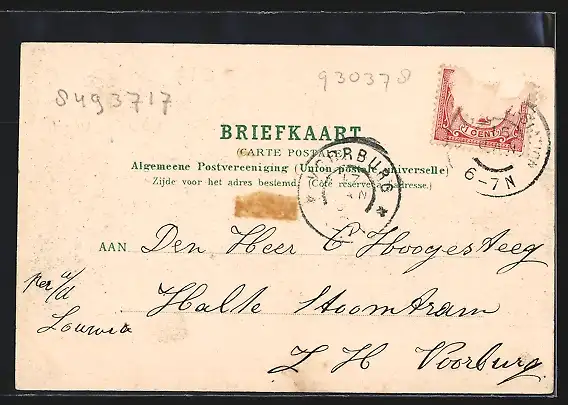 930378
BRIEFKAART
(CARTE POSTALE)
Algemeene Postvereeniging (Union postale universelle)
Zijde voor het adres bestemd. (Côté réservé à l'adresse.)
VOORBURG
CENT
6-7N
AAN Den Heer C Hoogesteeg
per
Halte Stoomtram
Z H Voorburg